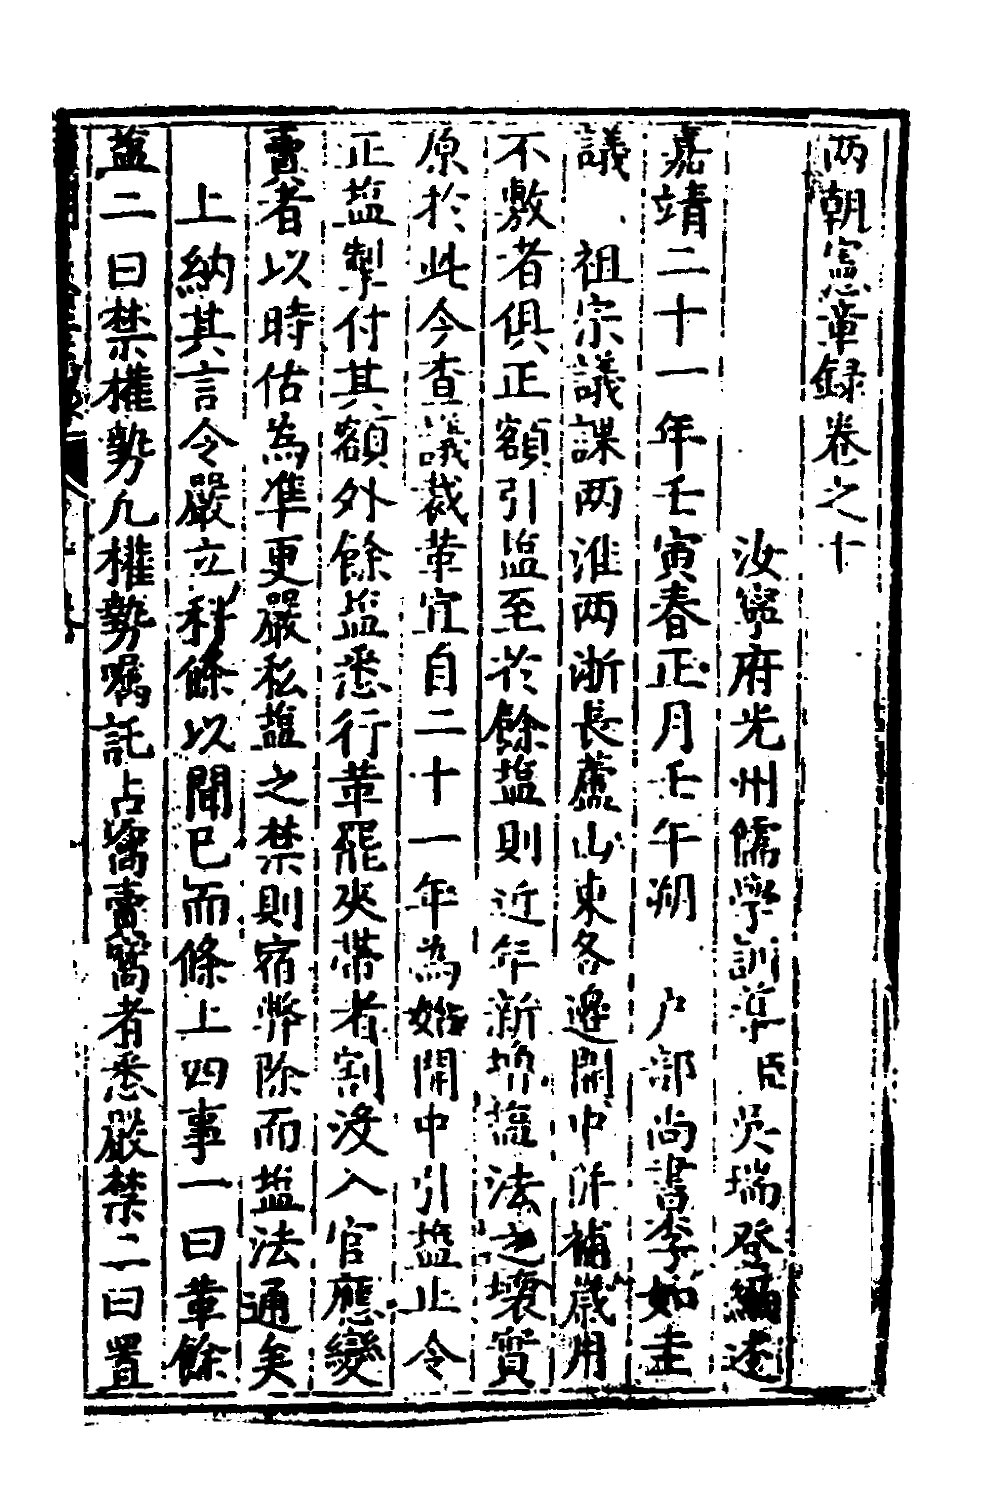 两朝憲章録卷之十
汝寧府光州儒學訓導臣吳瑞登編述
嘉靖二十一年壬寅春正月壬午朔　户部尚書李如圭
議　祖宗議課两淮两浙長蘆山東各邊開中併補歲用
不敷者俱正額引塩至扵餘塩則近年新增塩法之壞實
原扵此今查議裁革宜自二十一年為始開中引塩止令
正塩掣付其額外餘塩悉行革罷夾帶者割没入官應變
賣者以時估為準更嚴私塩之禁則宿弊除而塩法通矣
上納其言令嚴立科條以聞已而條上四事一曰革餘
塩二曰禁權勢凢權勢囑託占窩賣窩者悉嚴禁三曰置